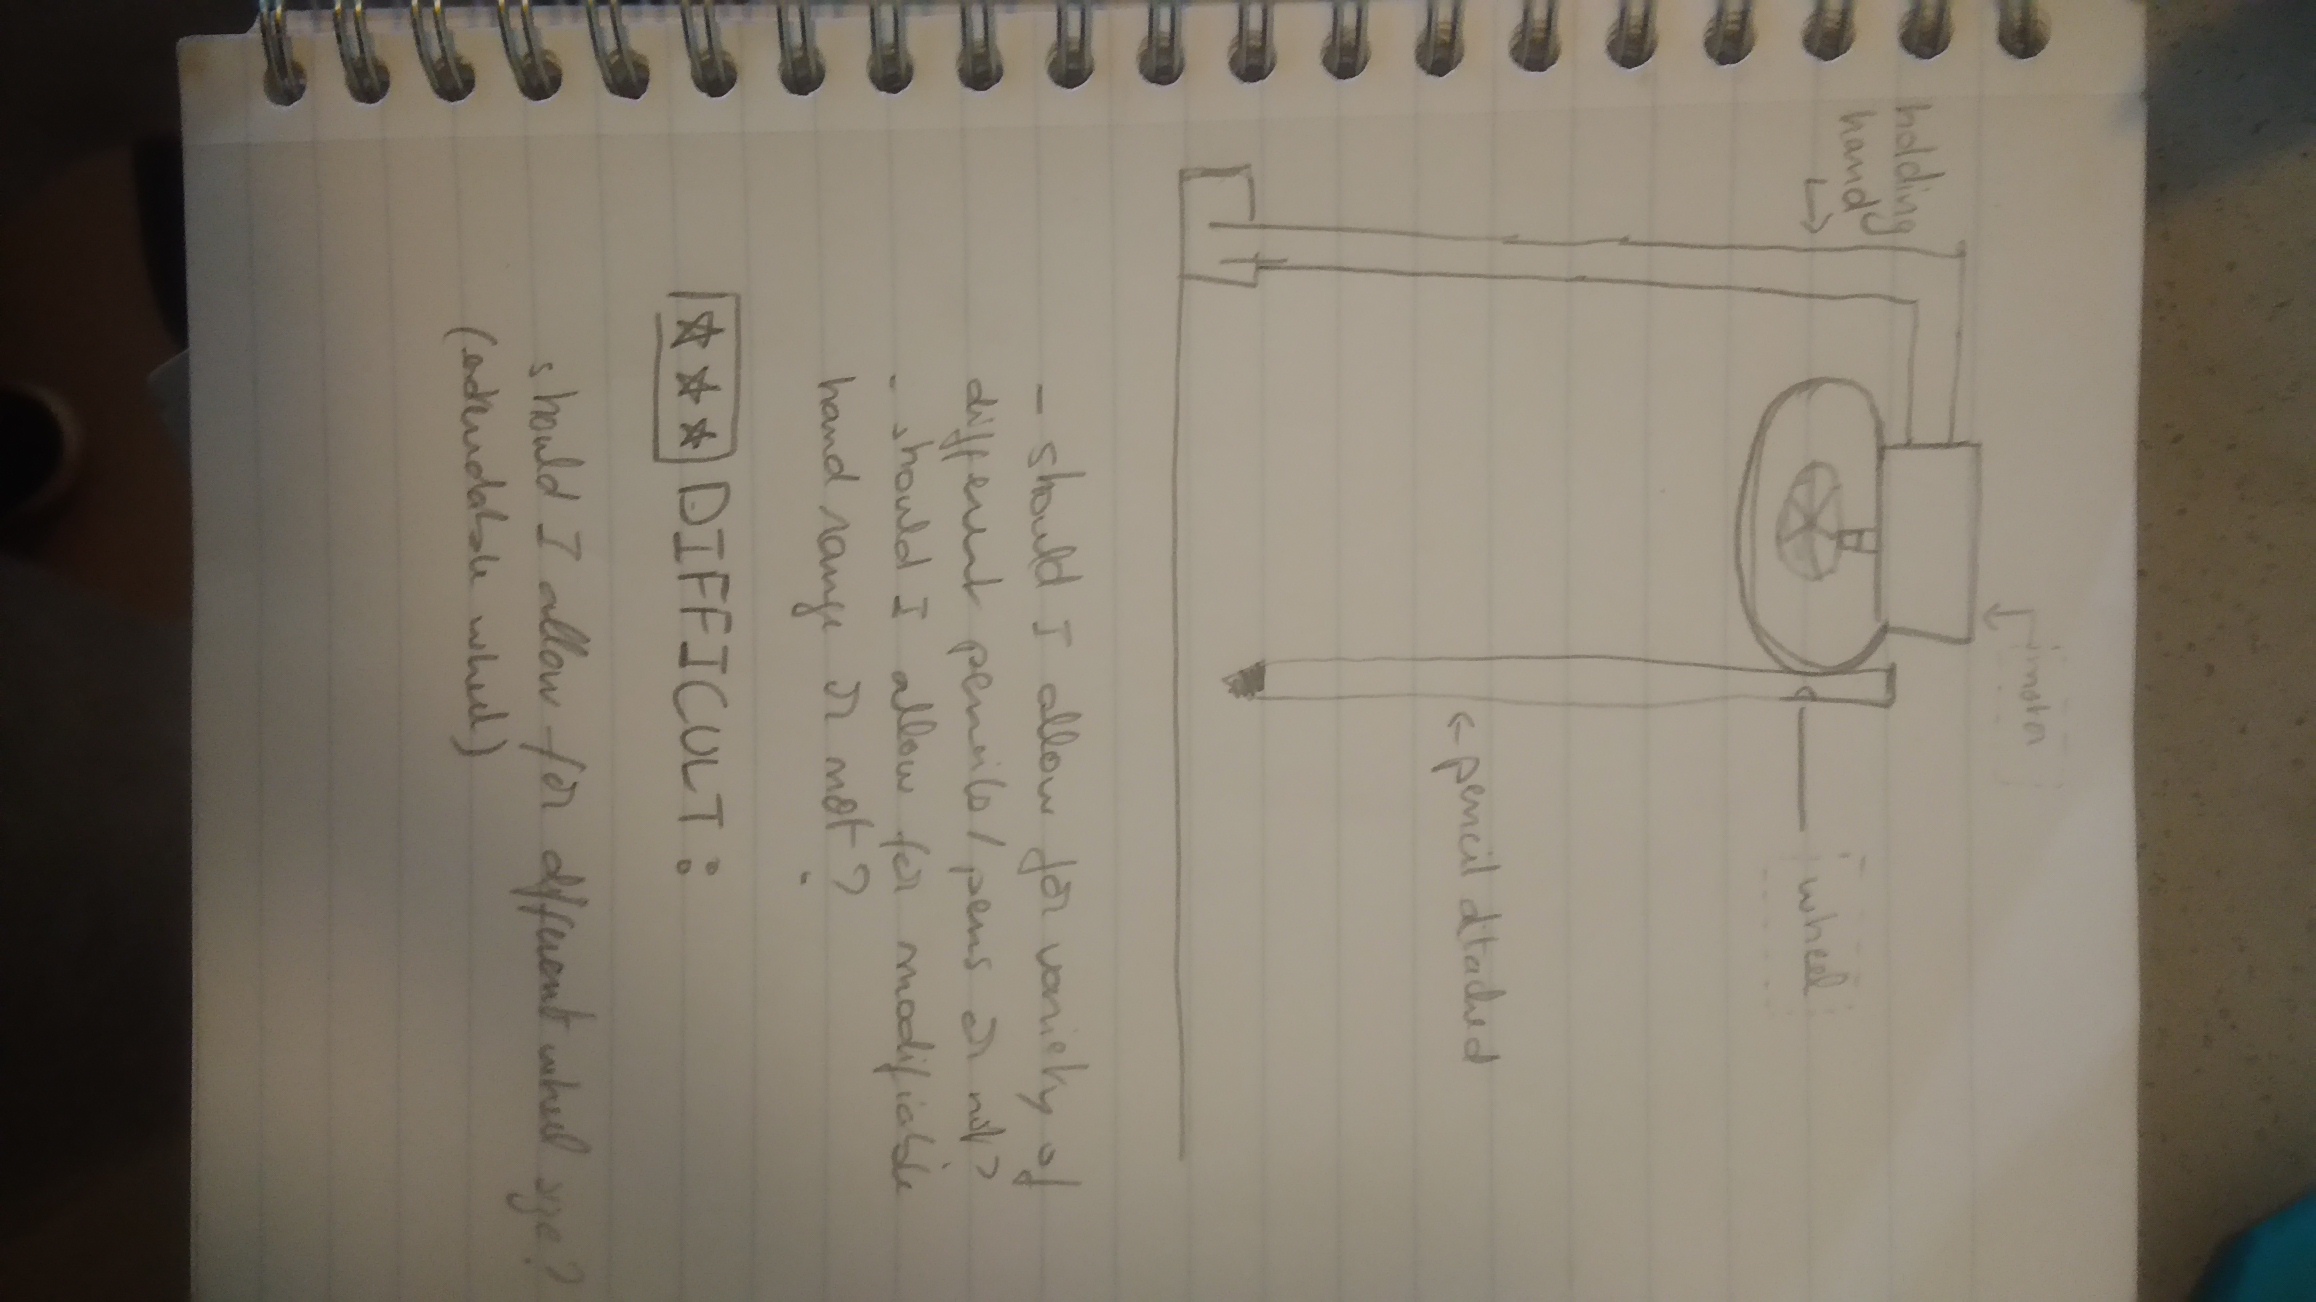 motor
holding
hand
wheel
pencil attached
- should I allow for variety of
different pencils/pens or not?
- should I allow for modifiable
hand range or not?
☆☆☆ DIFFICULT:
should I allow for different wheel size?
(extendable wheel)